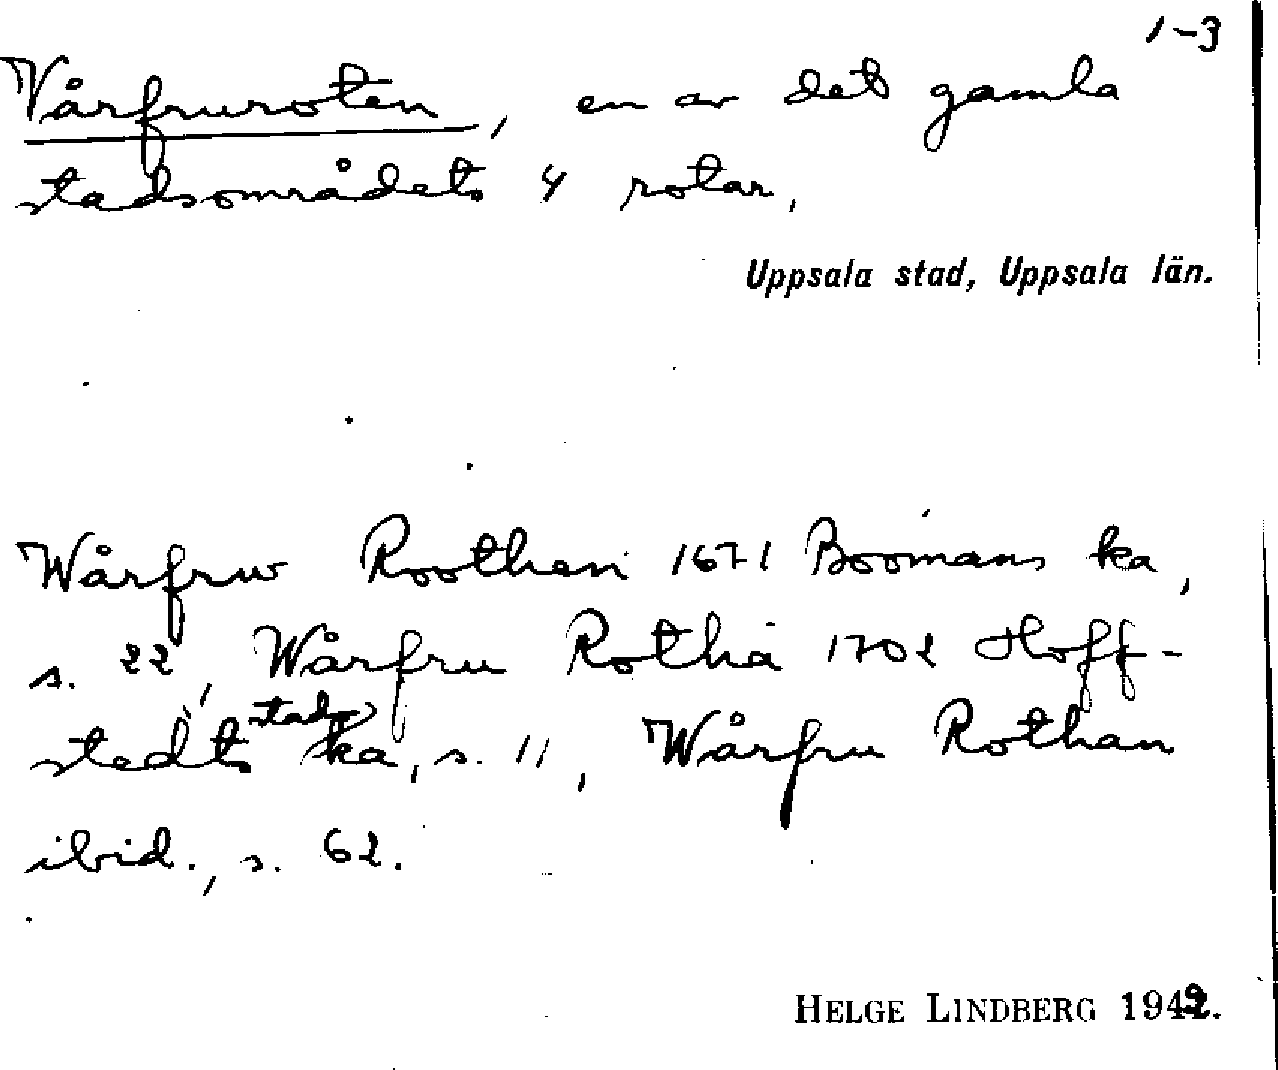 1-3
Vårfruroten, en av det gamla
stadsområdets 4 rotar,
Uppsala stad, Uppsala län.
Wårfrw Roothen 1671 Boomans ka,
s. 22, Wårfru Rotha 1702 Hoff-
stedts stads ka, s. 11, Wårfru Rothan
ibid., s. 62.
HELGE LINDBERG